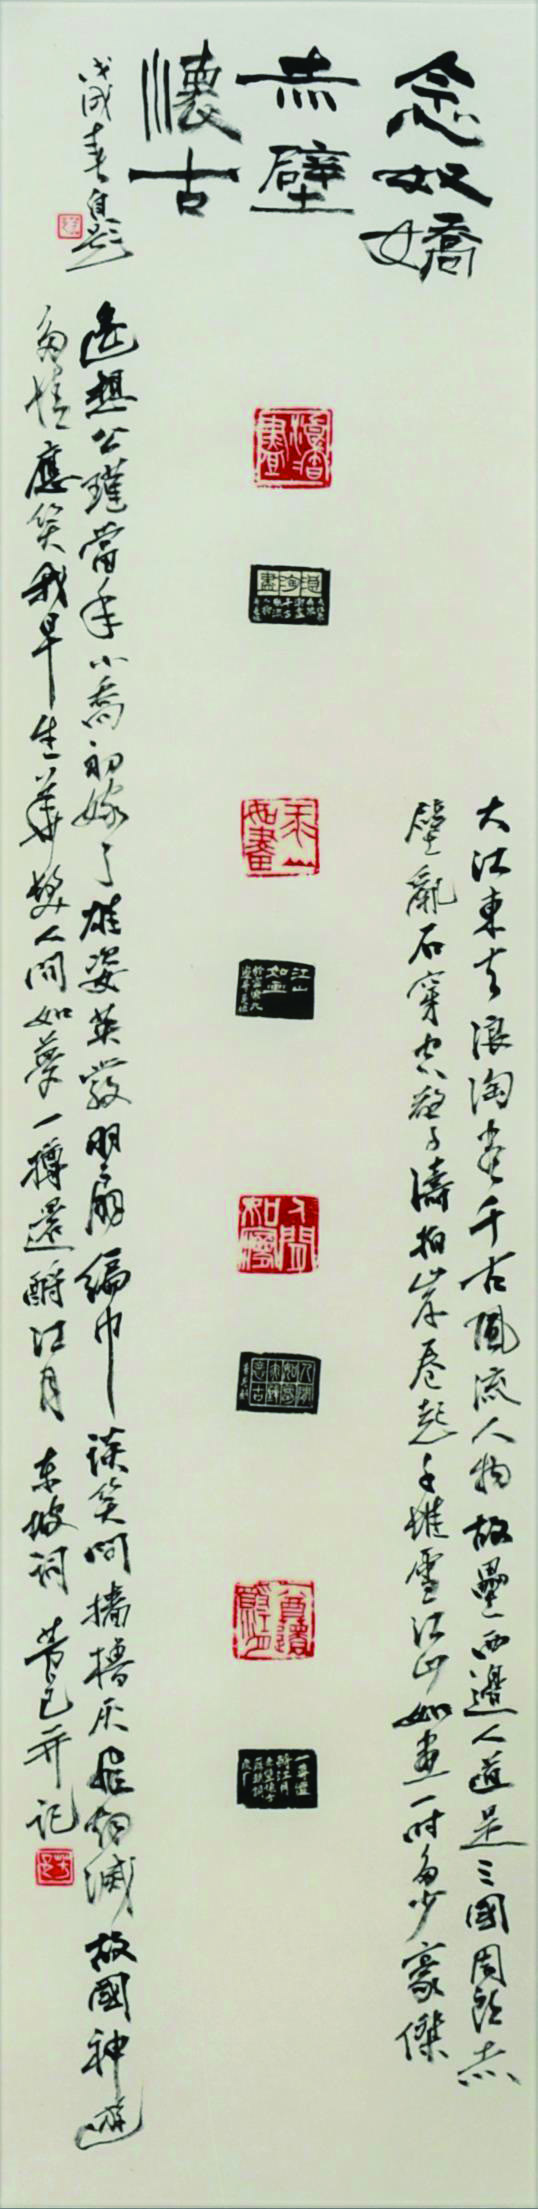 念奴嬌
赤壁
懷古
戊戌春自題
大江東去浪淘盡千古風流人物故壘西邊人道是三國周郎赤
壁亂石穿空驚濤拍岸卷起千堆雪江山如畫一時多少豪傑
江山如畫
江山如畫
人間如夢
遙想公瑾當年小喬初嫁了雄姿英發羽扇綸巾談笑間檣櫓灰飛烟滅故國神遊
多情應笑我早生華髮人間如夢一樽還酹江月 東坡詞 并記